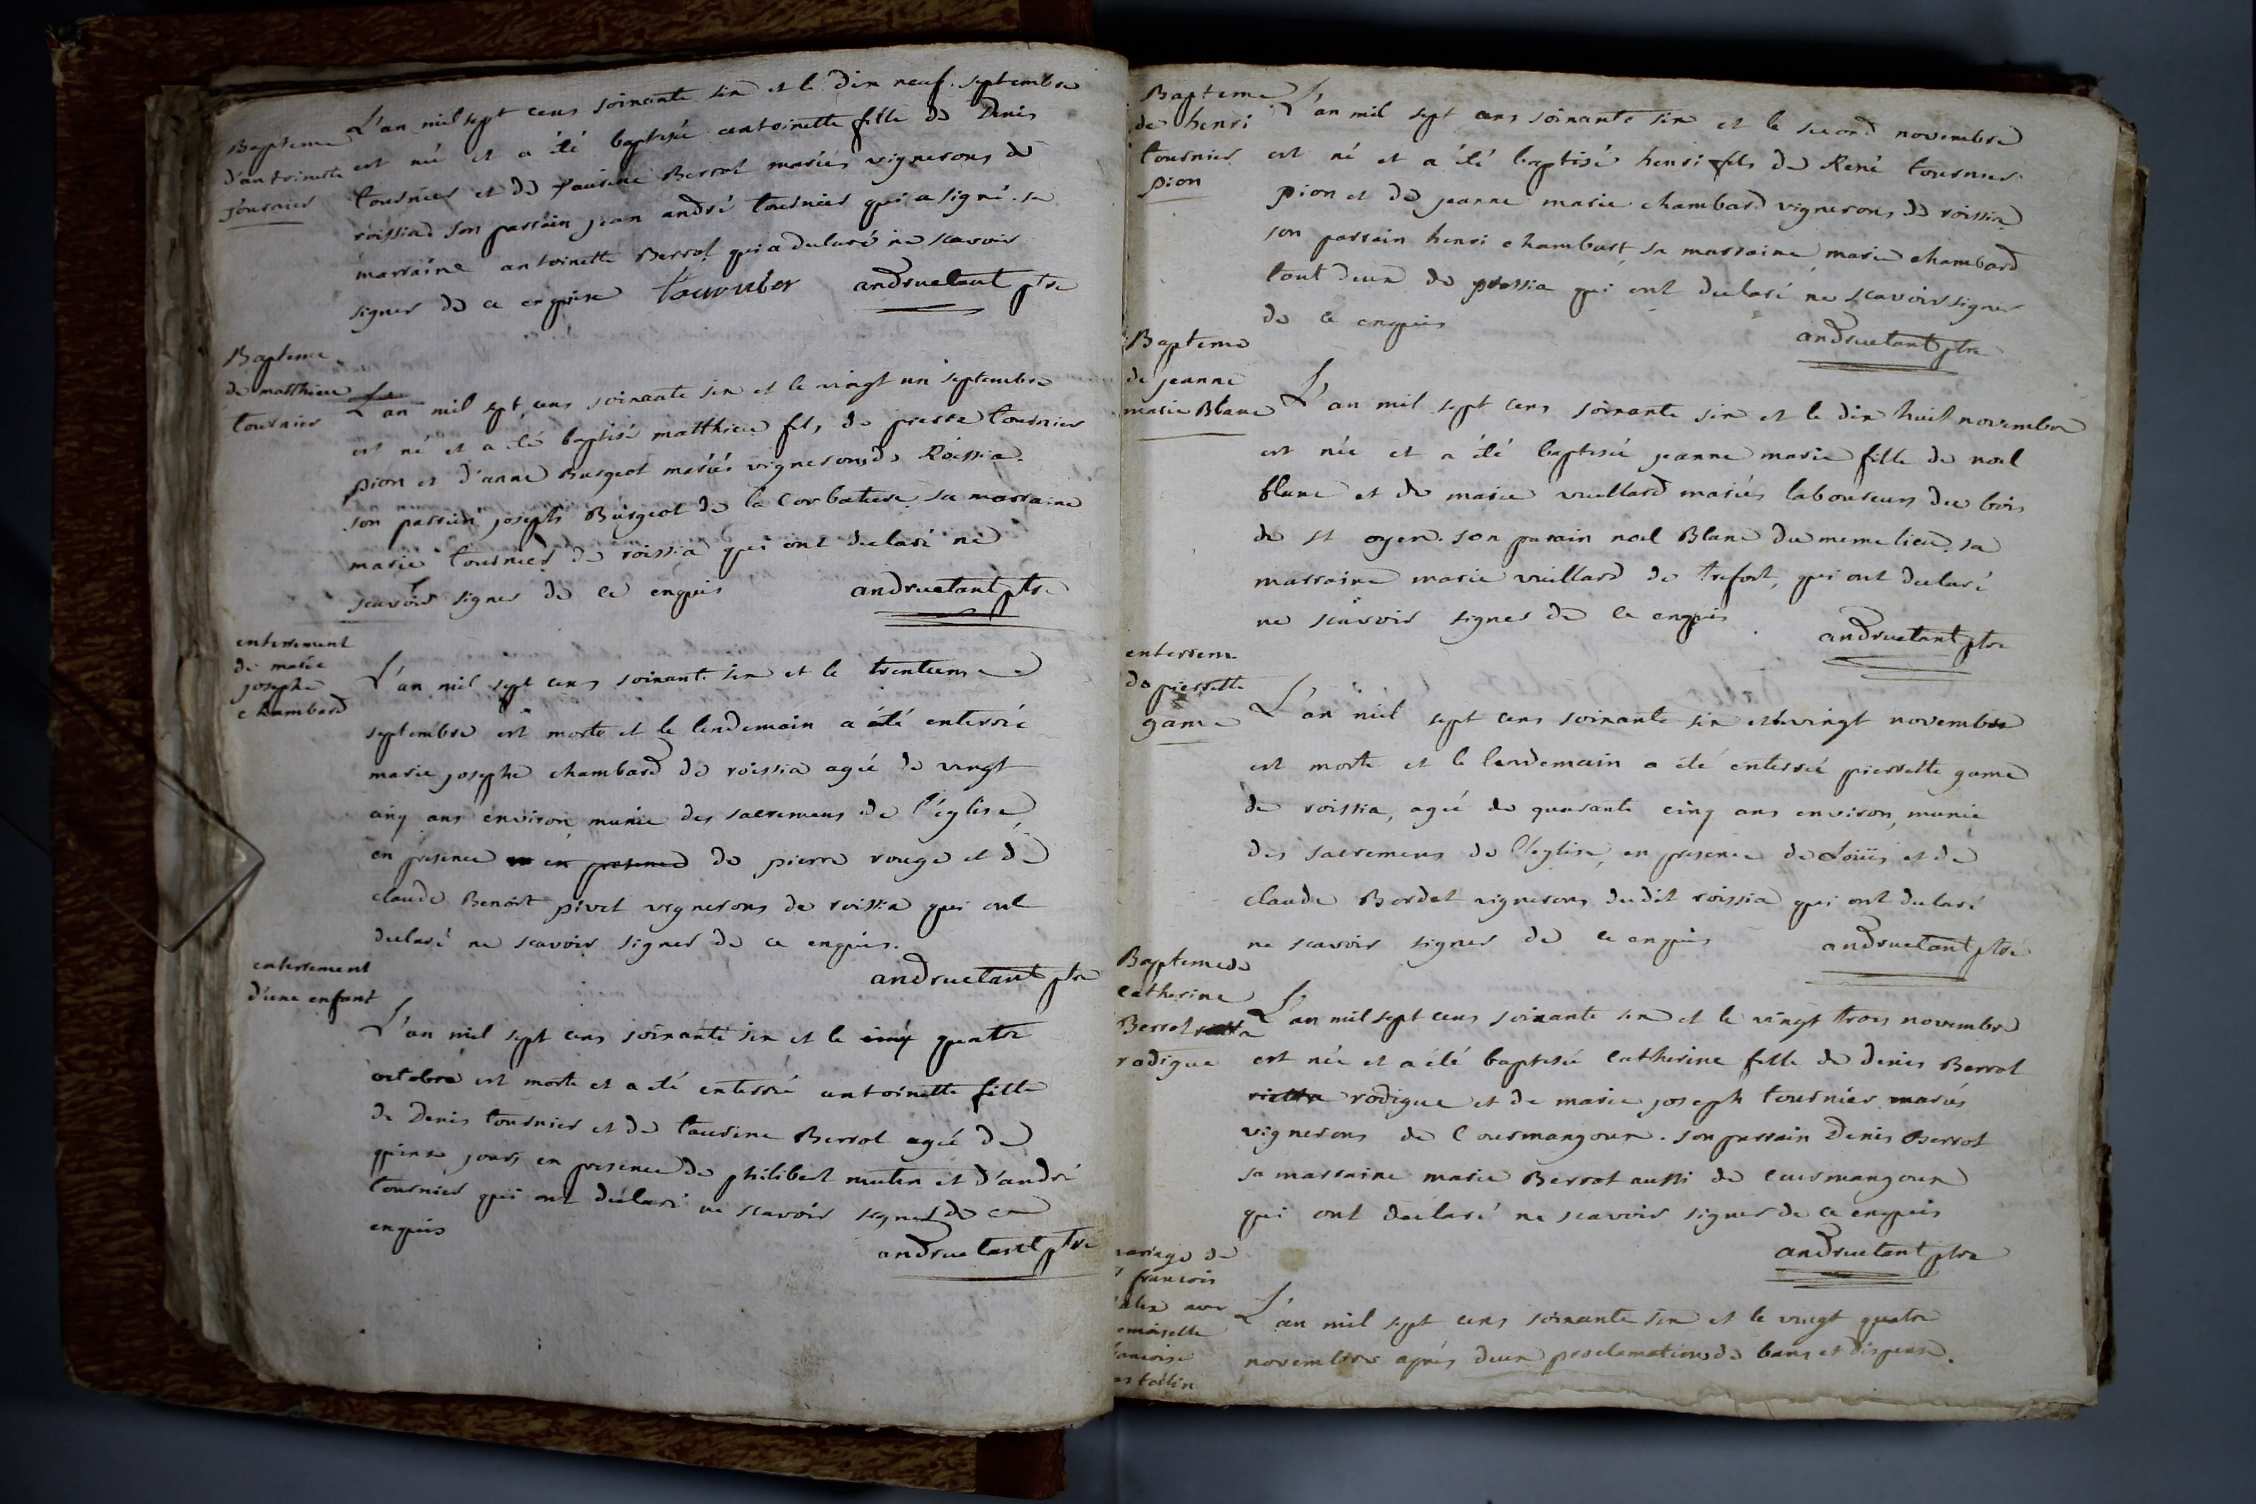 Bapteme
d'antoinette
tournier
L'an mil sept cens soixante six et le dix neuf septembre
est née et a été baptisée antoinette fille de Denis
tournier et de taurine Berrot mariés vignerons de
roissia son parrain jean andré tournier qui a signé. sa
marraine antoinette Berrot qui a declaré ne scavoir
signer de ce enquise tournier andruetant ptre
Bapteme
de matthieu
tournier
L'an mil sept cens soixante six et le vingt un septembre
est né et a été baptisé matthieu fils de pierre tournier
pion et d'anne Burgeot mariés vignerons de Roissia.
son parrain joseph Burgeot de la Corbatiere sa marraine
marie tournier de roissia qui ont declaré ne
scavoir signer de ce enquis andruetant ptre
enterrement
de marie
josephe
chambard
L'an mil sept cens soixante six et le trentieme
septembre est morte et le lendemain a été enterrée
marie josephe chambard de roissia agée de vingt
cinq ans environ munie des sacremens de l'église,
en presence en presence de pierre rouge et de
claude Benoit pivet vignerons de roissia qui ont
declaré ne scavoir signer de ce enquis.
andruetant ptre
enterrement
d'une enfant
L'an mil sept cens soixante six et le cinq quatre
octobre est morte et a été enterrée antoinette fille
de Denis tournier et de taurine Berrot agée de
quinze jours en presence de philibert mutin et d'andré
tournier qui ont declaré ne scavoir signer de ce
enquis
andruetant ptre
Bapteme
de henri
tournier
pion
L'an mil sept cens soixante six et le second novembre
est né et a été baptisé henri fils de René tournier
pion et de jeanne marie chambard vignerons de roissia
son parrain henri chambart sa marraine marie chambard
tout deux de pressia qui ont declaré ne scavoir signer
de ce enquis
andruetant ptre
Bapteme
de jeanne
marie Blanc
L'an mil sept cens soixante six et le dix huit novembre
est née et a été baptisée jeanne marie fille de noel
blanc et de marie vuillard mariés laboureurs du bois
de st oyen. son parrain noel Blanc du meme lieu. sa
marraine marie vuillard de trefort, qui ont declaré
ne scavoir signer de ce enquis
andruetant ptre
enterrem
de pierrette
game
L'an mil sept cens soixante six et le vingt novembre
est morte et le lendemain a été enterrée pierrette game
de roissia, agée de quarante cinq ans environ, munie
des sacremens de l'eglise, en presence de Loüis et de
claude Bordet vignerons dudit roissia qui ont declaré
ne scavoir signer de ce enquis
andruetant ptre
Bapteme de
catherine
Berrot
rodigue
L'an mil sept cens soixante six et le vingt trois novembre
est née et a été baptisée catherine fille de denis Berrot
rodigue et de marie joseph tournier mariés
vignerons de Courmangoux. son parrain Denis Berrot
sa marraine marie Berrot aussi de courmangoux
qui ont declaré ne scavoir signer de ce enquis
andruetant ptre
mariage de
françois
avec
emoiselle
ancoise
L'an mil sept cens soixante six et le vingt quatre
novembre après deux proclamations de bans et dispense.